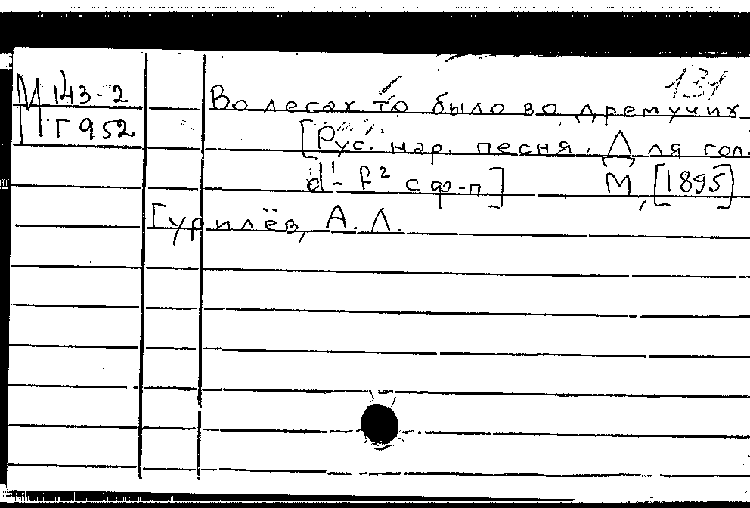 131
М 143-2
Г 952
Во лесах то было во дремучих
[Рус. нар. песня. Для гол.
d¹- f² с ф-п] М, [1895]
Гурилёв, А. Л.